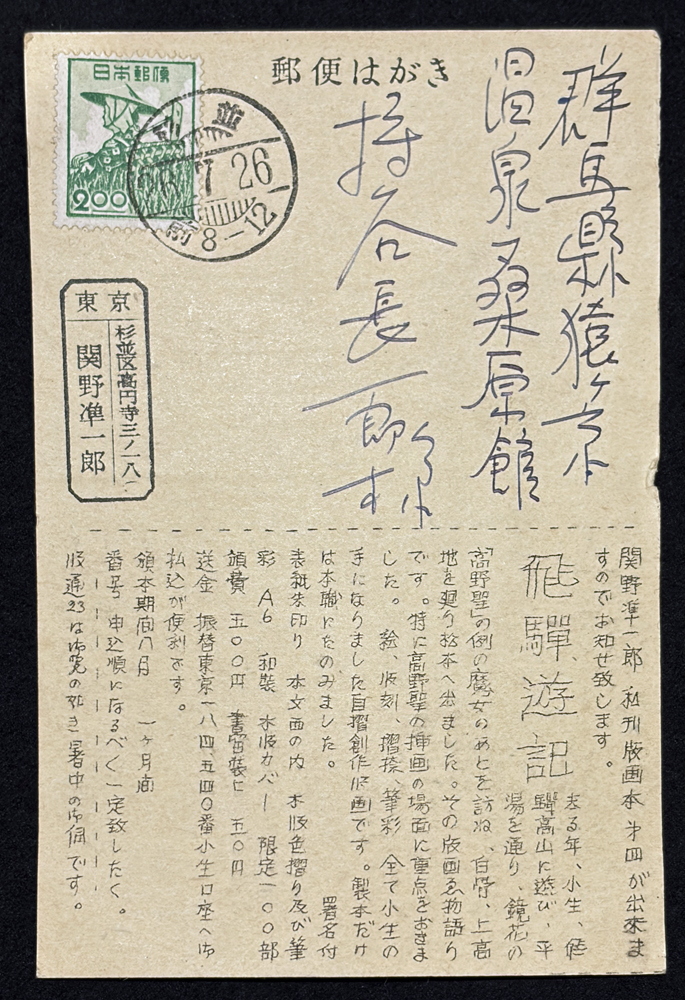 郵便はがき
日本郵便
2.00
並
7.26
前8-12
群馬県猿ヶ京
温泉桑原館
持谷長一郎様
東京
杉並区高円寺三ノ一八一
関野準一郎
関野準一郎 私刊版画本 第四が出来ま
すのでお知せ致します。
飛騨遊記
去る年、小生、飛
騨高山に遊び、平
湯を通り、鏡花の
「高野聖」の例の魔女のあとを訪ね、白骨、上高
地を廻り松本へ出ました。その版画ゑ物語り
です。特に高野聖の挿画の場面に重点をおきま
した。 絵、版刻、摺捺、筆彩、全て小生の
手になりました自摺創作版画です。製本だけ
は本職にたのみました。 署名付
表紙朱印り 本文面の内 木版色摺り及び筆
彩 A6 和装 木版カバー 限定一〇〇部
頒費 五〇〇円 書留装ヒ 五〇円
送金 振替東京一八四、五四〇番小生口座へ御
払込が便利です。
頒本期間八月 一ヶ月間
番号 申込順になるべく一定致したく。
版通23は御覧の如き暑中の御伺です。